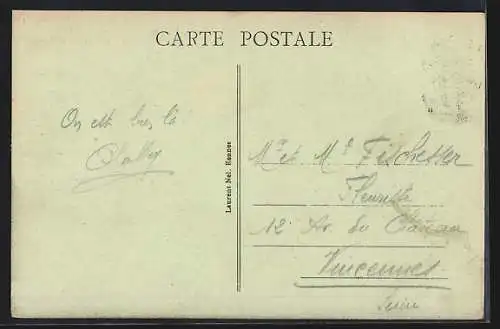 CARTE POSTALE
On est bien là
Laurent Nel, Rennes
Mr et Me Fischesser
Fleuriste
12 Av. du Château
Vincennes
Seine